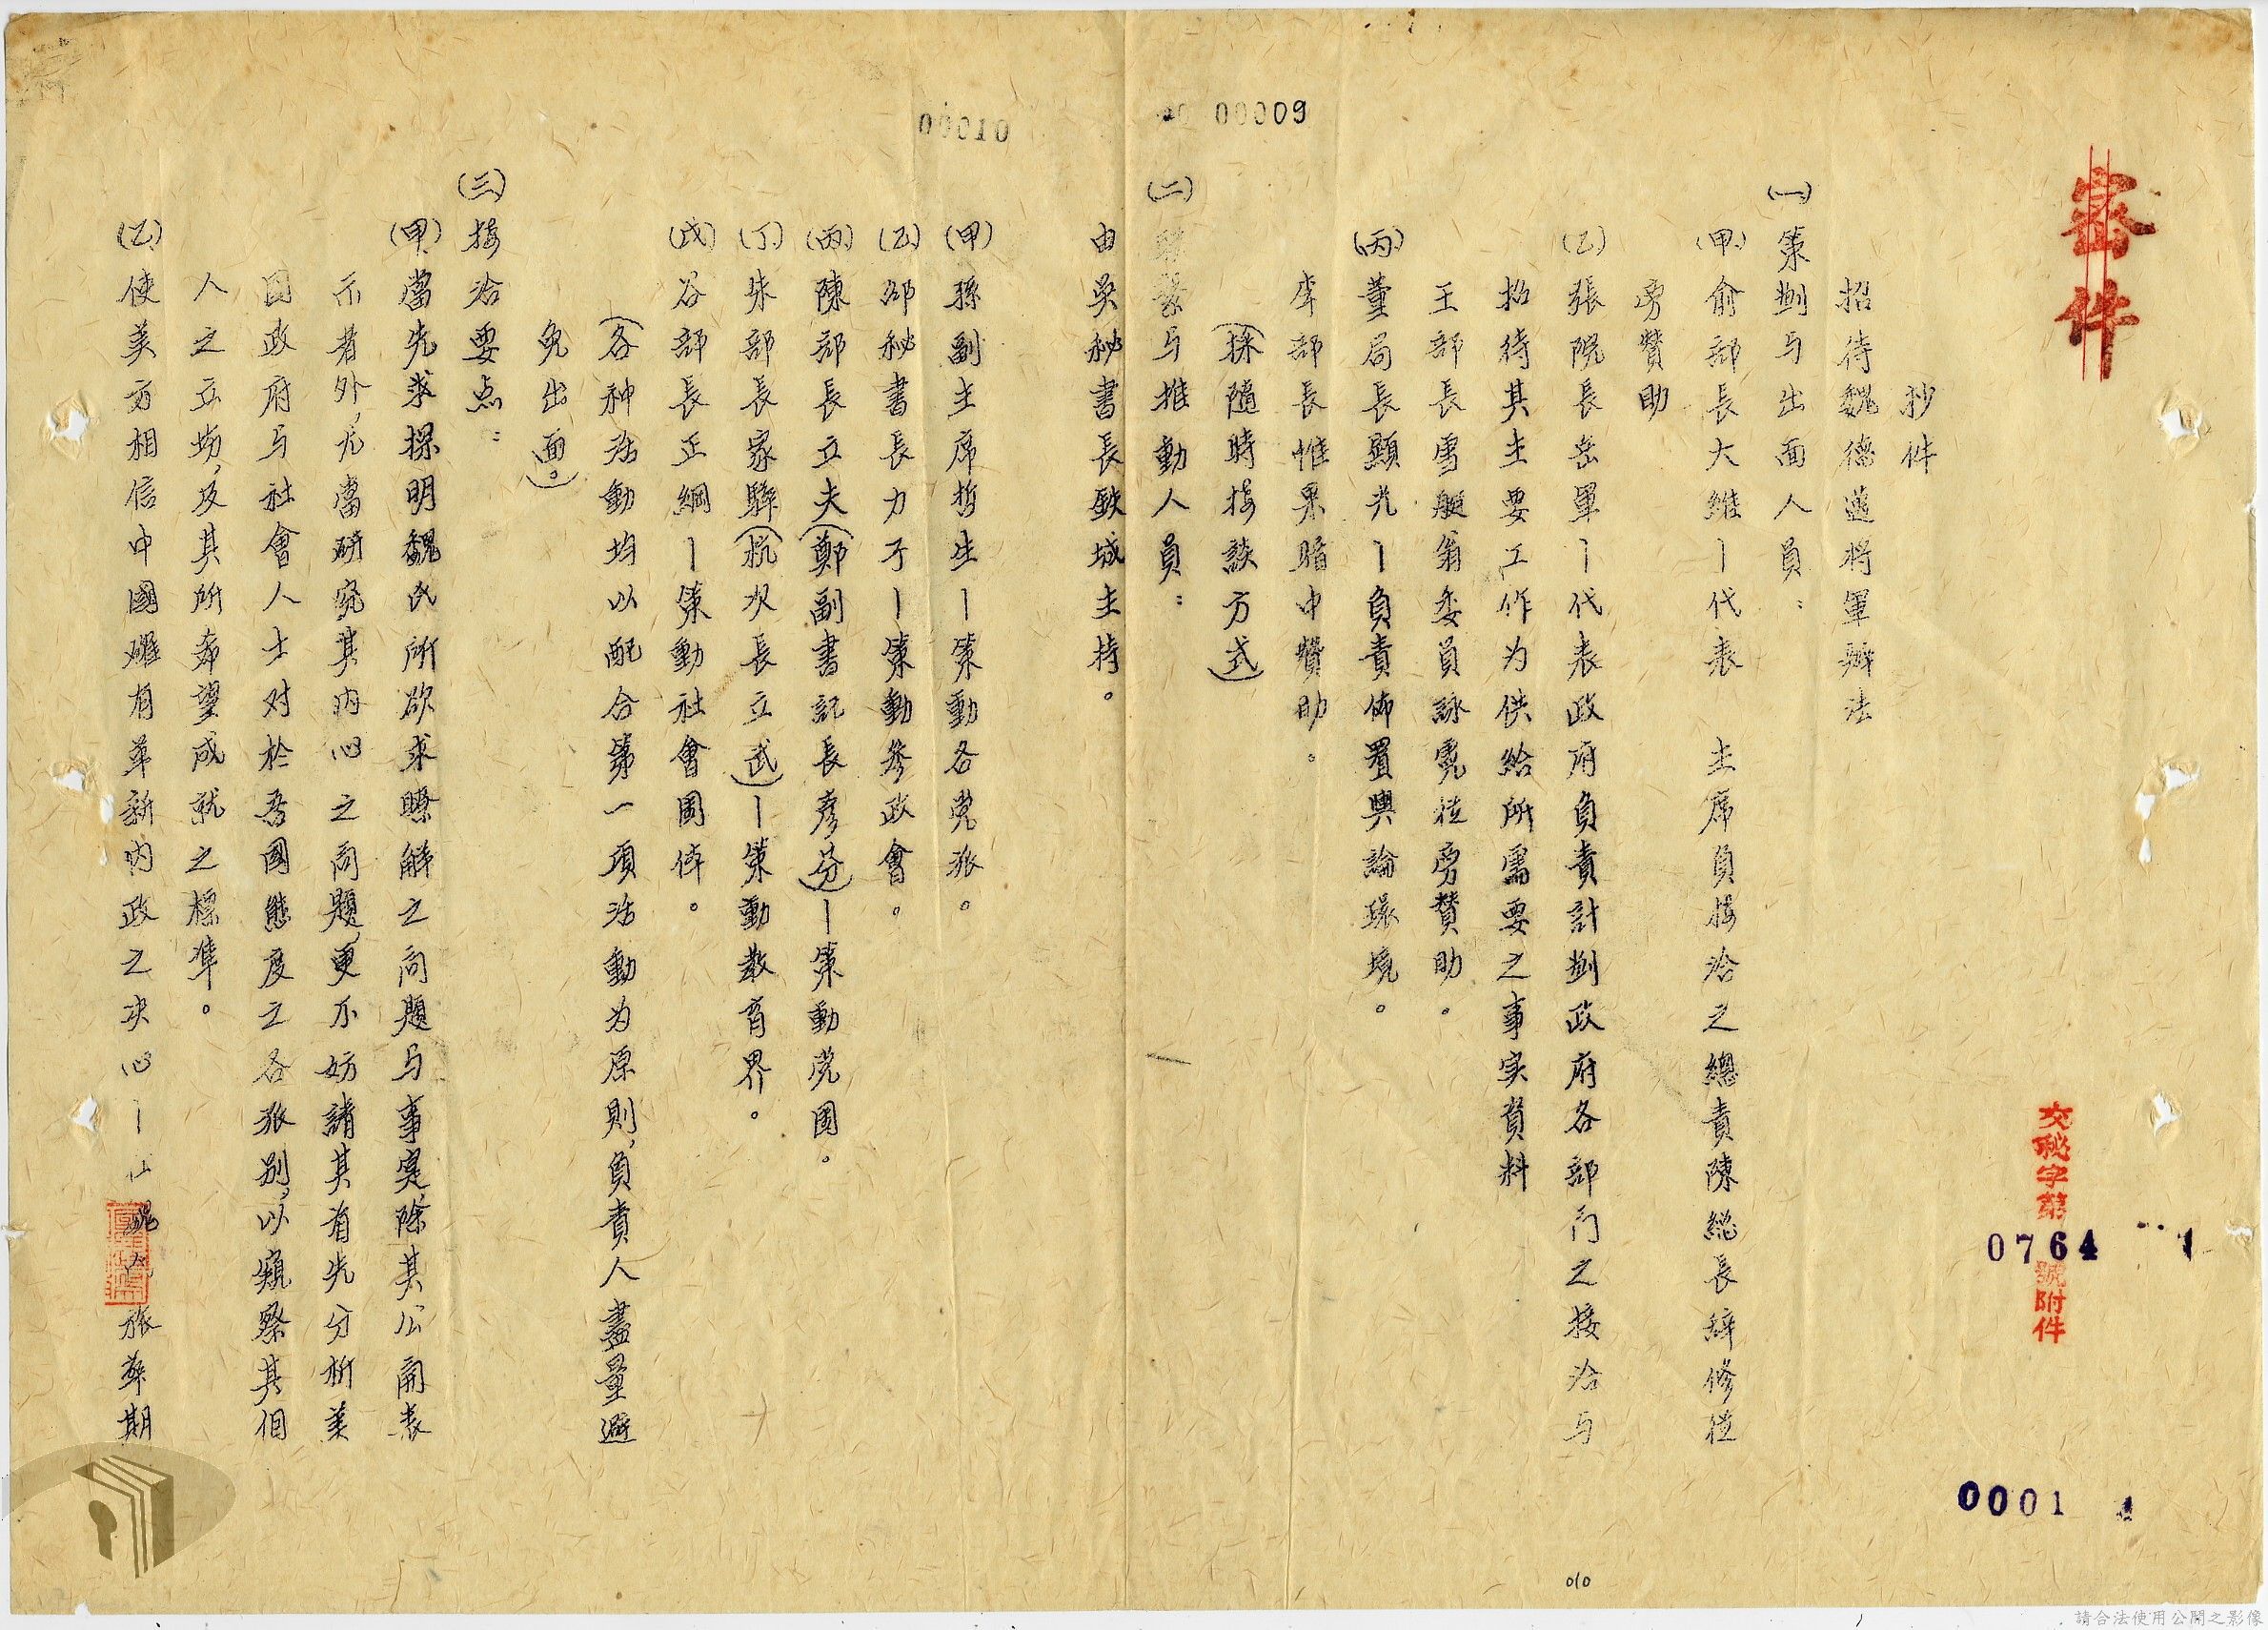 密件
交秘字第
0764
1
號附件
0001
010
抄件
招待魏德邁將軍辦法
(一)策劃与出面人員：
(甲)俞部長大維－代表　主席負接洽之總責陳總長辞修從
旁贊助
(乙)張院長岳軍－代表政府負責計劃政府各部门之接洽与
招待其主要工作为供給所需要之事实資料
王部長雪艇翁委員詠霓從旁贊助。
(丙)董局長顯光－負責佈置輿論環境。
李部長惟果暗中贊助。
(採隨時接談方式)
(二)聯繫与推動人員：
由吳秘書長鉄城主持。
00009
00010
(甲)孫副主席哲生－策動各党派。
(乙)邵秘書長力子－策動參政會。
(丙)陳部長立夫(鄭副書記長彥棻)－策動党團。
(丁)朱部長家驊(杭次長立武)－策動教育界。
(戊)谷部長正綱－策動社會團体。
(各种活動均以配合第一項活動为原則，負責人盡量避
免出面。)
(三)接洽要点：
(甲)當先求探明魏氏所欲求瞭解之问題与事实，除其公開表
示者外，尤當研究其内心之问題，更不妨請其首先分析美
國政府与社會人士对於吾國態度之各派别，以窺察其個
人之立場，及其所希望成就之標準。
(乙)使美方相信中國確有革新内政之决心－
旅華期
請合法使用公開之影像